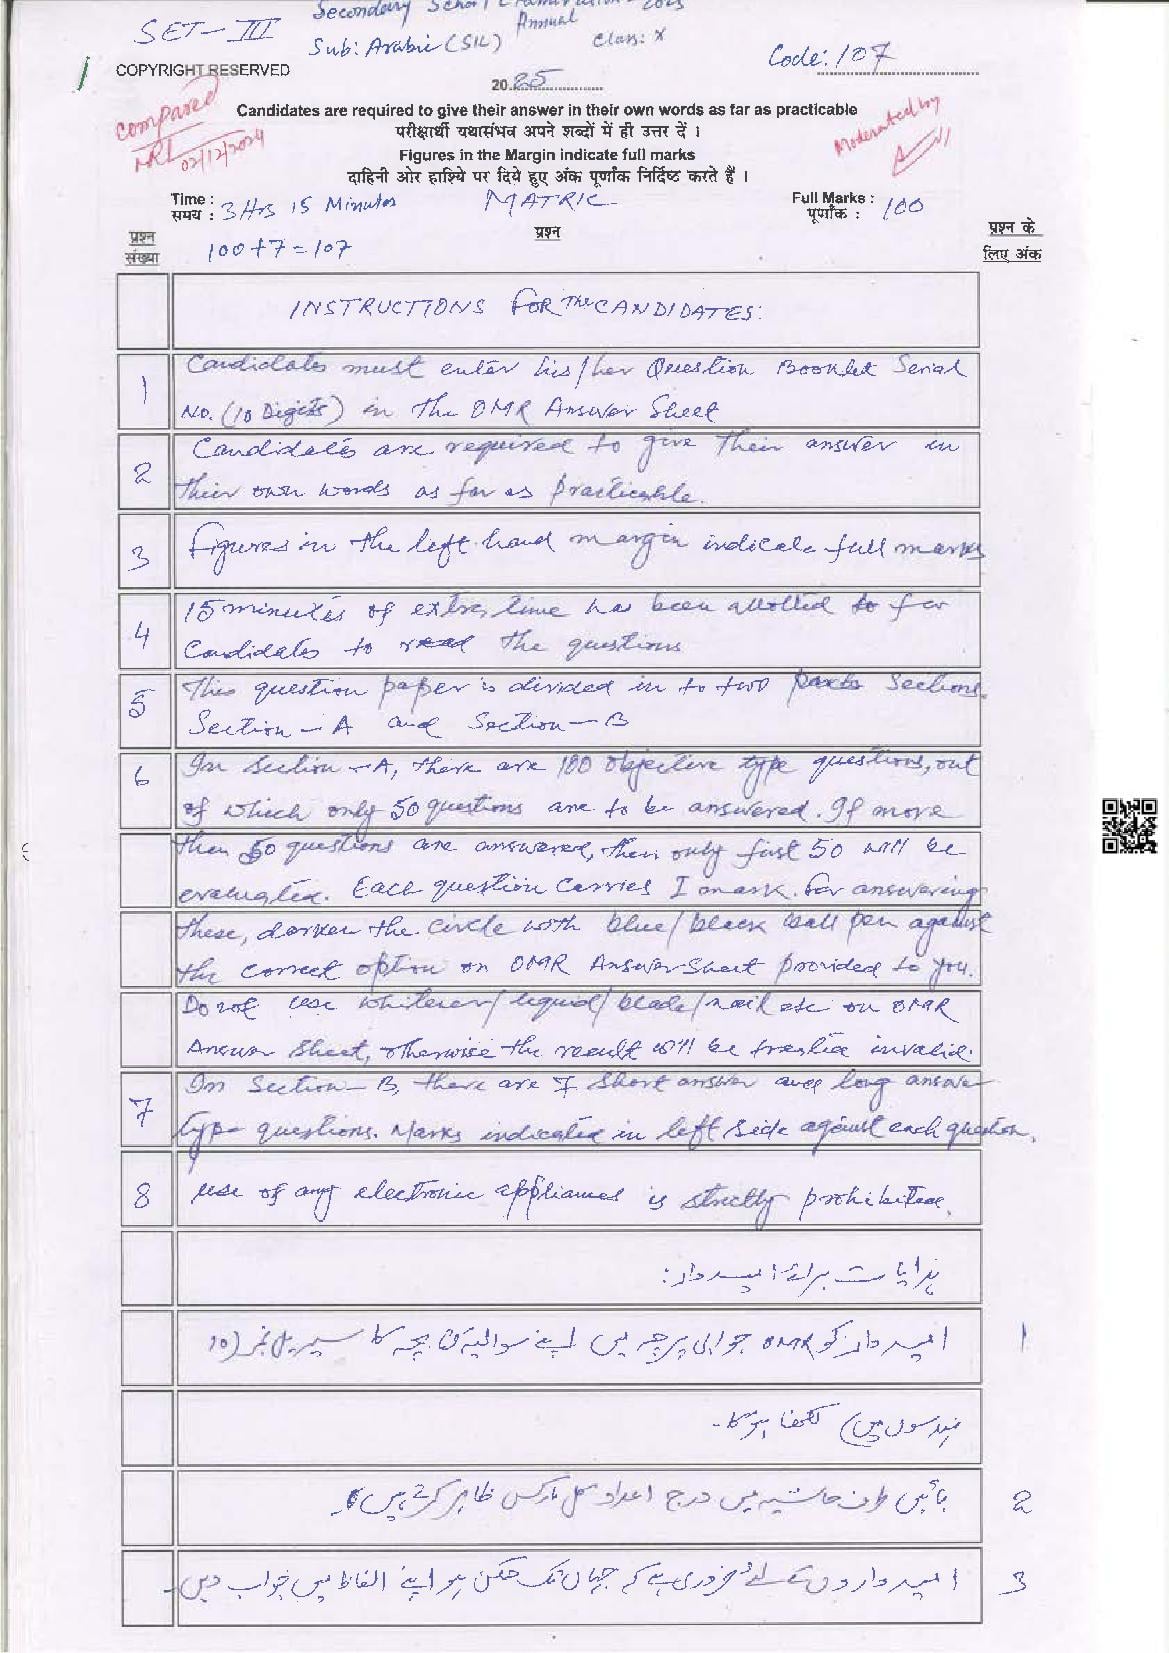 SET-III
Secondary School Examination-2025
Annual
Sub: Arabic (SIL)
Class: X
Code: 107
1
COPYRIGHT RESERVED
2025
Candidates are required to give their answer in their own words as far as practicable
परीक्षार्थी यथासंभव अपने शब्दों में ही उत्तर दें ।
Figures in the Margin indicate full marks
दाहिनी ओर हाशिये पर दिये हुए अंक पूर्णांक निर्दिष्ट करते हैं ।
compared
02/12/2024
Moderated by
Time :
समय : 3 Hrs 15 Minutes
MATRIC
Full Marks :
पूर्णांक : 100
प्रश्न संख्या
100+7=107
प्रश्न
प्रश्न के लिए अंक
INSTRUCTIONS FOR The CANDIDATES:
1 Candidates must enter his/her Question Booklet Serial
No. (10 Digits) in the OMR Answer Sheet
2 Candidates are required to give their answer in
their own words as far as practicable.
3 Figures in the left hand margin indicate full marks
4 15 minutes of extra time has been allotted to for
Candidates to read the questions
5 This question paper is divided in to two parts Sections.
Section - A and Section - B
6 In Section - A, there are 100 objective type questions, out
of which only 50 questions are to be answered. If more
then 50 questions are answered, then only first 50 will be
evaluated. Each question carries 1 mark. For answering
these, darken the circle with blue/black ball pen against
the correct option on OMR Answer Sheet provided to you.
Do not use whitener/liquid/blade/nail etc on OMR
Answer Sheet, otherwise the result will be treated invalid.
7 In Section - B, there are 7 short answer and long answer
type questions. Marks indicated in left side against each question.
8 use of any electronic appliances is strictly prohibited.
ہدایات برائے امیدوار:
امیدوار کو OMR جوابی پرچہ میں اپنے سوالیہ کتابچہ کا سیریل نمبر (10 1
ہندسوں میں) لکھنا ہوگا۔
بائیں طرف حاشیہ میں درج اعداد کل مارکس ظاہر کرتے ہیں 2
امیدواروں کے لئے ضروری ہے کہ جہاں تک ممکن ہو اپنے الفاظ میں جواب دیں۔ 3